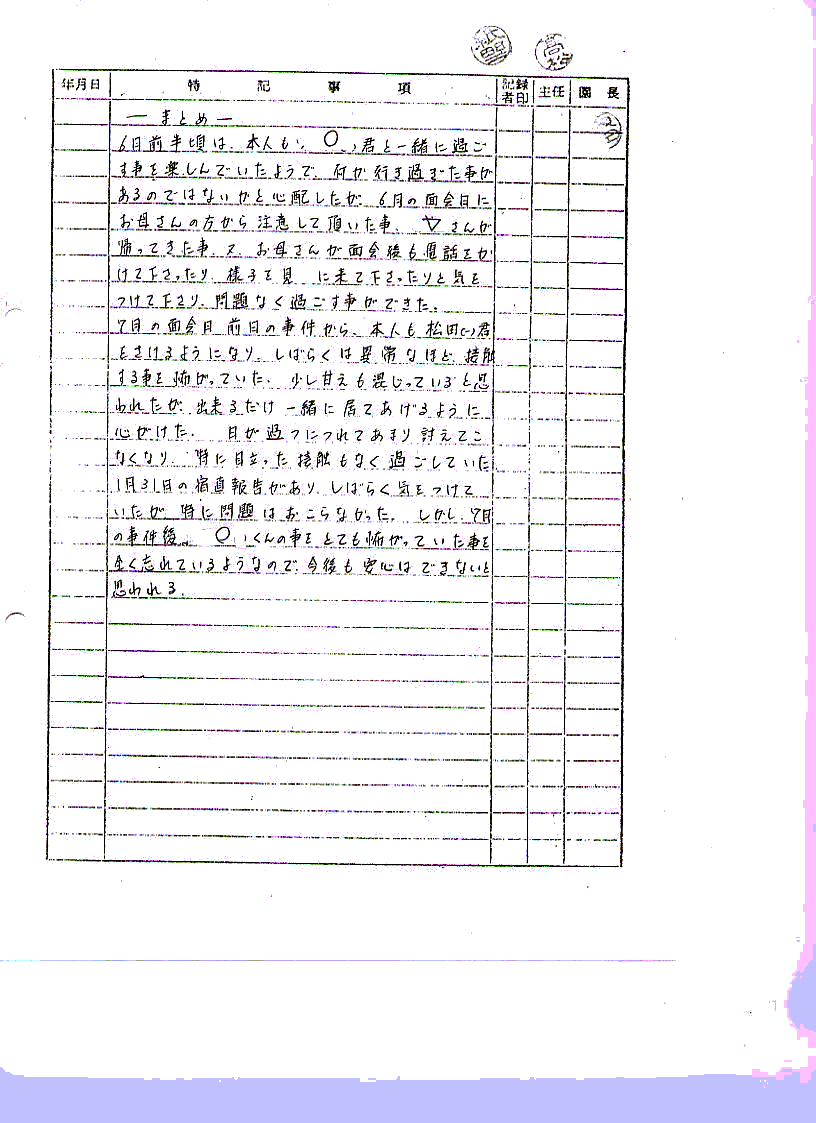 年月日 特記事項 記録者印 主任 園長
ーまとめー
6月前半頃は、本人も、〇、君と一緒に過ご
す事を楽しんでいたようで、何か行き過ぎた事が
あるのではないかと心配したが、6月の面会日に
お母さんの方から注意して頂いた事、▽さんが
帰ってきた事、又、お母さんが面会後も電話をか
けて下さったり、様子を見に来て下さったりと気を
つけて下さり、問題なく過ごす事ができた。
7月の面会日前日の事件から、本人も松田君
をさけるようになり、しばらくは異常なほど、接触
する事を怖がっていた。少し甘えも混じっていると思
われたが、出来るだけ一緒に居てあげるように
心がけた。日が過つにつれてあまり訴えてこ
なくなり、特に目立った接触もなく過ごしていた
1月31日の宿直報告があり、しばらく気をつけて
いたが、特に問題はおこらなかった。しかし、7月
の事件後、〇くんの事をとても怖がっていた事を
全く忘れているようなので、今後も安心はできないと
思われる。